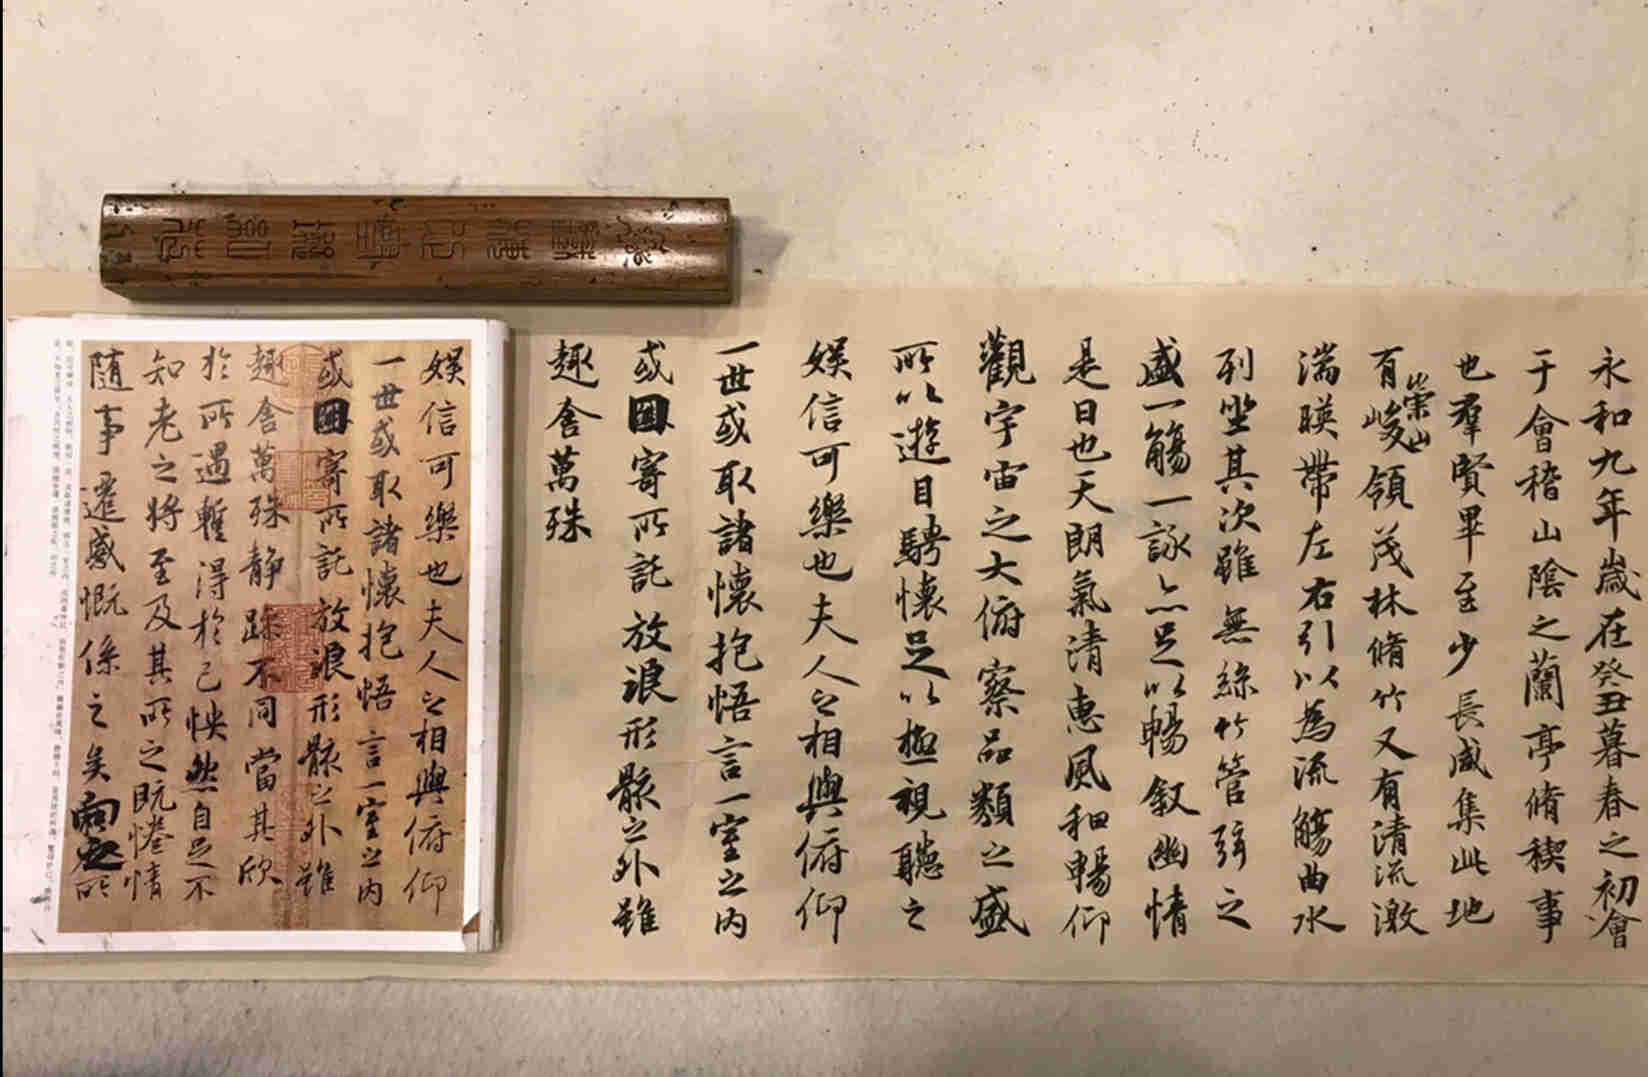 永和九年歲在癸丑暮春之初會
于會稽山陰之蘭亭脩稧事
也羣賢畢至少長咸集此地
有崇山峻領茂林脩竹又有清流激
湍暎帶左右引以為流觴曲水
列坐其次雖無絲竹管弦之
盛一觴一詠亦足以暢叙幽情
是日也天朗氣清惠風和暢仰
觀宇宙之大俯察品類之盛
所以遊目騁懷足以極視聽之
娛信可樂也夫人之相與俯仰
一世或取諸懷抱悟言一室之內
或因寄所託放浪形骸之外雖
趣舍萬殊
娛信可樂也夫人之相與俯仰
一世或取諸懷抱悟言一室之內
或因寄所託放浪形骸之外雖
趣舍萬殊静躁不同當其欣
於所遇暫得於己怏然自足不
知老之將至及其所之既惓情
随事遷感慨係之矣向之所